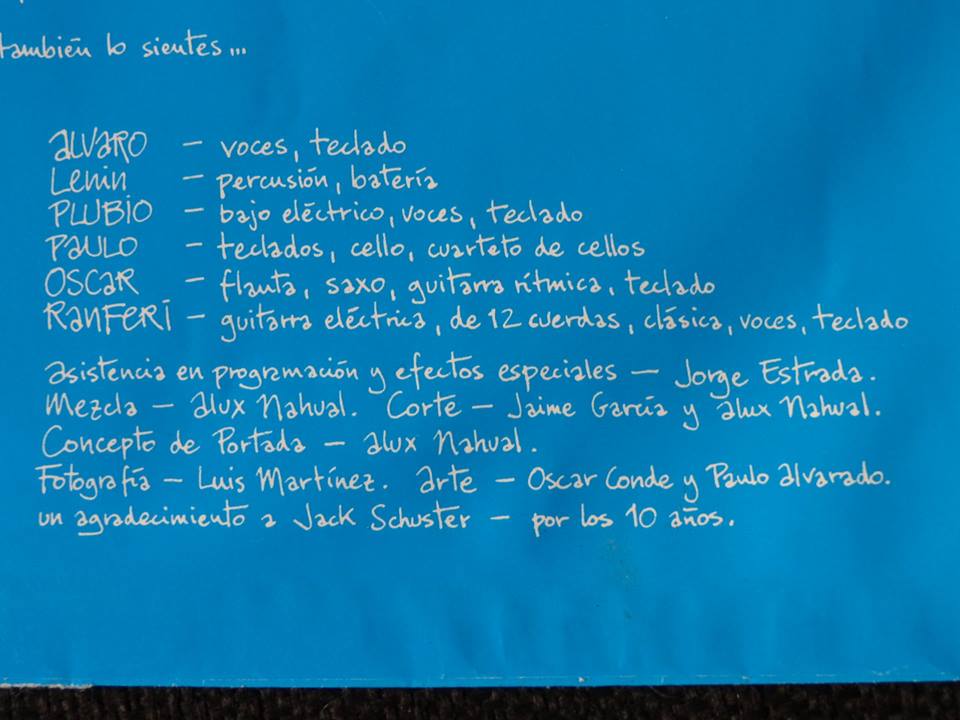 también lo sientes...
ALVARO - voces, teclado
Lenin - percusión, batería
PLUBIO - bajo eléctrico, voces, teclado
PAULO - teclados, cello, cuarteto de cellos
OSCAR - flauta, saxo, guitarra rítmica, teclado
RANFERÍ - guitarra eléctrica, de 12 cuerdas, clásica, voces, teclado
asistencia en programación y efectos especiales - Jorge Estrada.
Mezcla - alux Nahual. Corte - Jaime García y alux Nahual.
Concepto de Portada - alux Nahual.
Fotografía - Luis Martínez. arte - Oscar Conde y Paulo alvarado.
un agradecimiento a Jack Schuster - por los 10 años.